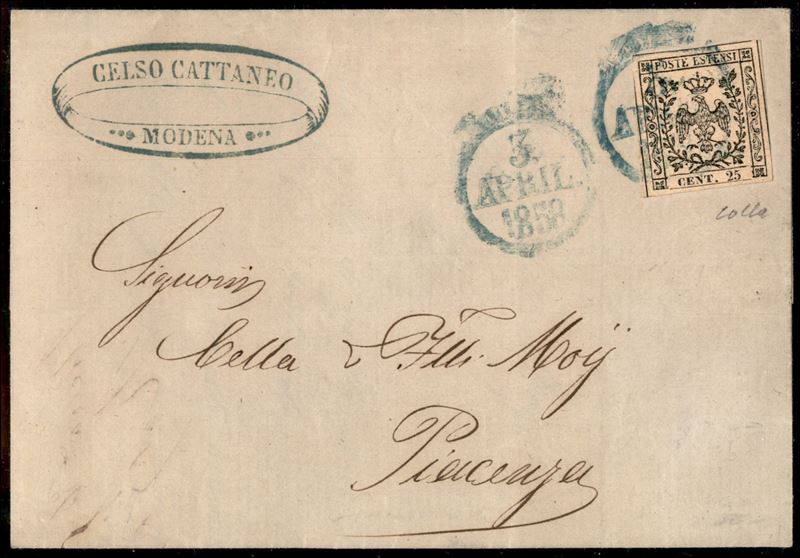 CELSO CATTANEO
MODENA
3.
APRIL.
1858
POSTE ESTENSI
CENT. 25
colla
Signori
Cella & Flli Moÿ
Piacenza